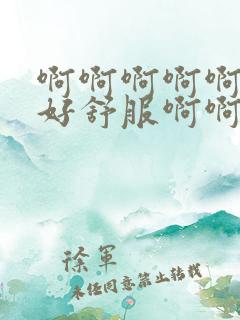 啊啊啊啊啊
好舒服啊啊
徐军
未经同意禁止转载